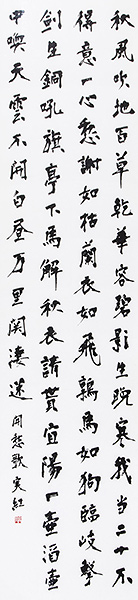 秋風吹地百草乾華容碧影生晚寒我当二十不
得意一心愁謝如枯蘭衣如飛鶉馬如狗臨岐擊
劍生銅吼旗亭下馬解秋衣請貰宜陽一壺酒壺
中喚天雲不開白晝万里閑淒迷 開愁歌